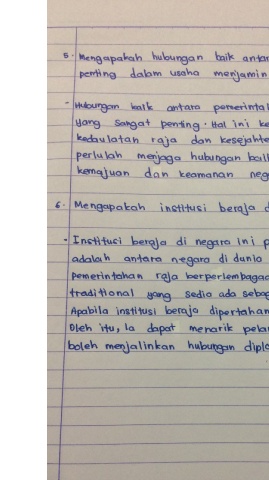 5. Mengapakah hubungan baik antar
penting dalam usaha menjamin
- Hubungan baik antara pemerintah
yang sangat penting. Hal ini ke
kedaulatan raja dan kesejahte
perlulah menjaga hubungan baik
kemajuan dan keamanan neg
6. Mengapakah institusi beraja d
- Institusi beraja di negara ini p
adalah antara negara di dunia
pemerintahan raja berperlembagaa
traditional yang sedia ada sebag
Apabila institusi beraja dipertahan
Oleh itu, Ia dapat menarik pela
boleh menjalinkan hubungan diplo